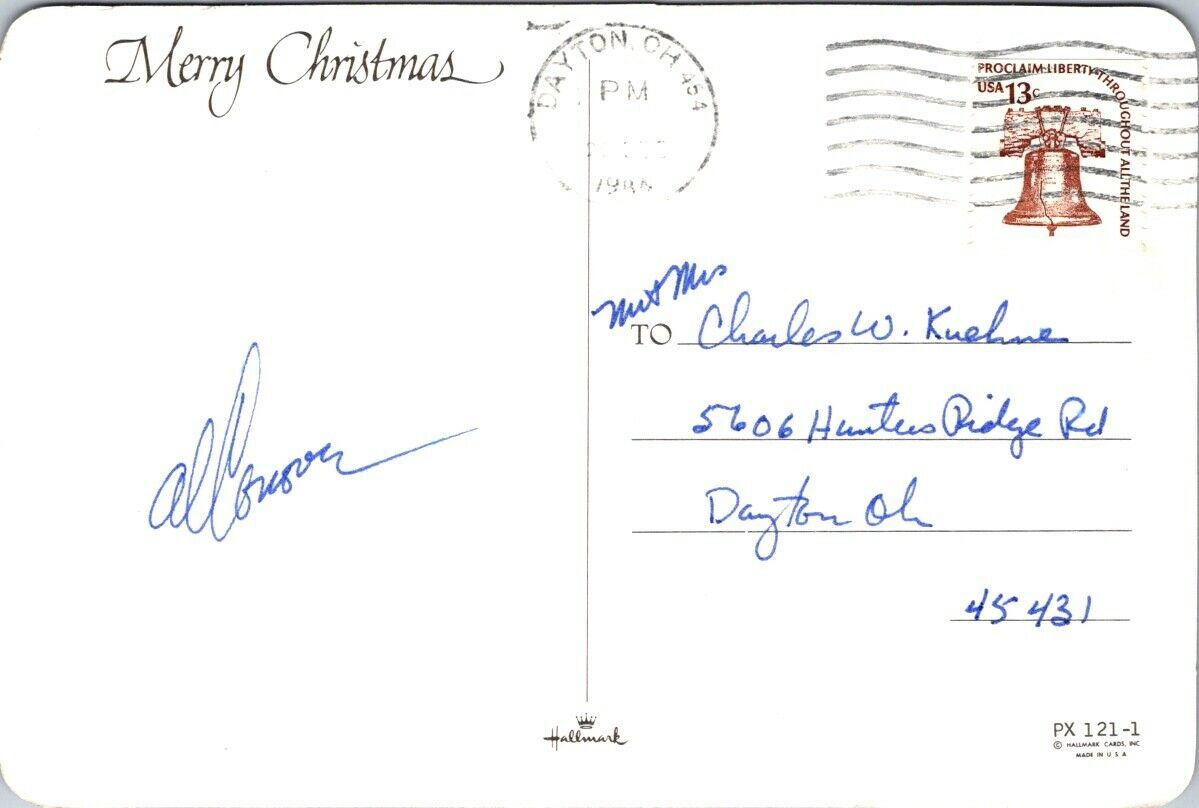 Merry Christmas
DAYTON, OH 454
PM
PROCLAIM LIBERTY THROUGHOUT ALL THE LAND
USA 13c
Mr & Mrs
TO Charles W. Kuehne
5606 Hunters Ridge Rd
Dayton Oh
45431
Al Conover
Hallmark
PX 121-1
© HALLMARK CARDS, INC
MADE IN U S A